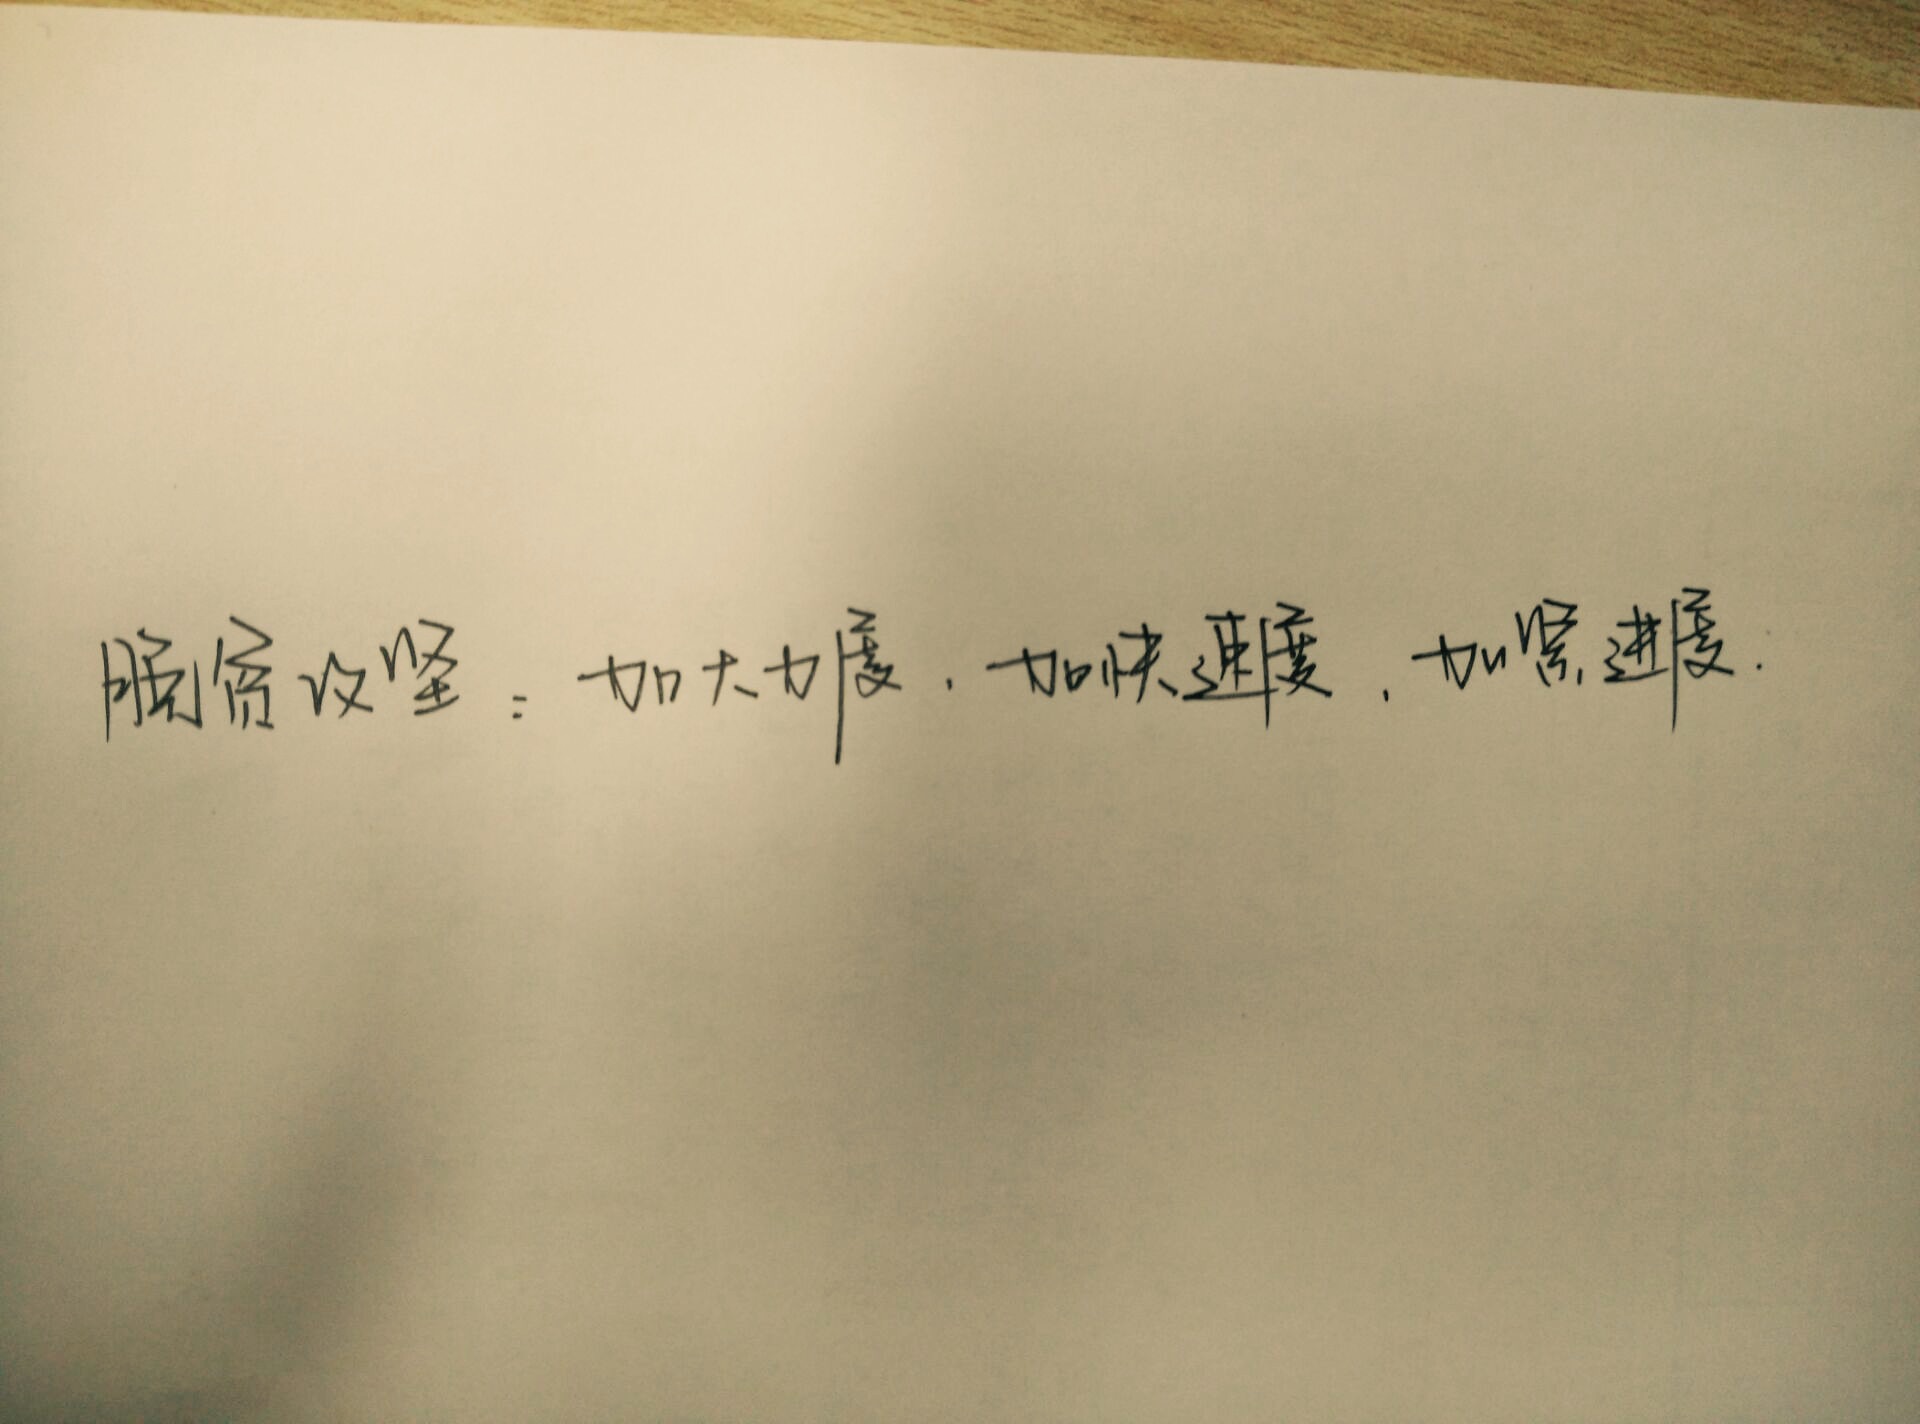 脱贫攻坚：加大力度，加快速度，加紧进度.